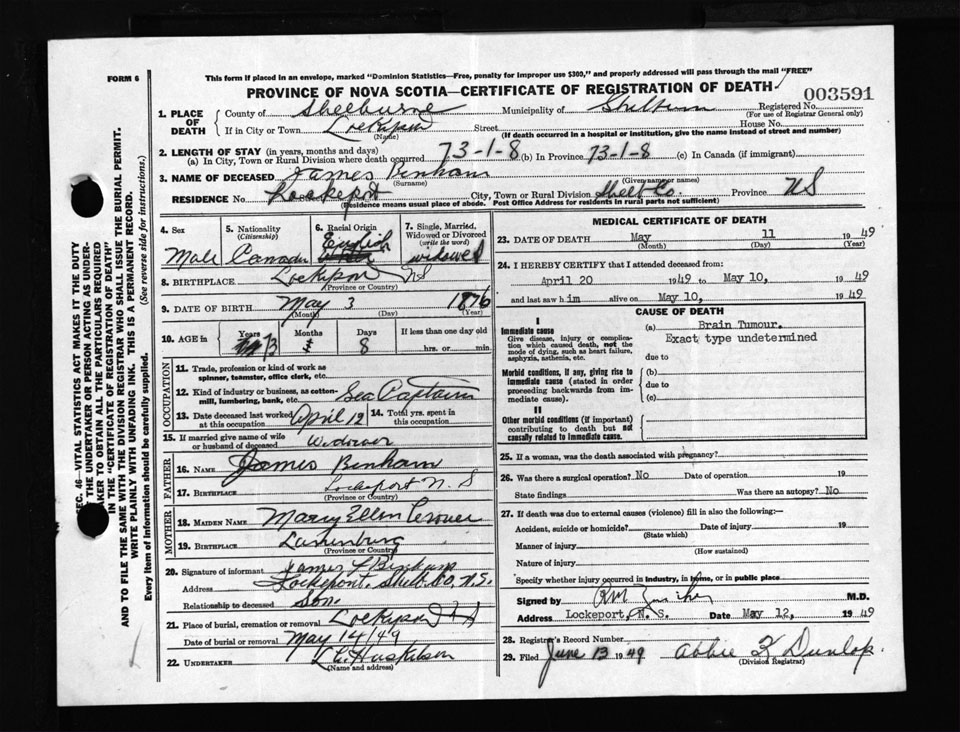 FORM 6
This form if placed in an envelope, marked "Dominion Statistics—Free, penalty for improper use $300," and properly addressed will pass through the mail "FREE"
PROVINCE OF NOVA SCOTIA—CERTIFICATE OF REGISTRATION OF DEATH
003591
1. PLACE OF DEATH
County of Shelburne Municipality of Registered No.
(For use of Registrar General only)
If in City or Town Lockeport Street House No.
(Name) (If death occurred in a hospital or institution, give the name instead of street and number)
2. LENGTH OF STAY (in years, months and days)
(a) In City, Town or Rural Division where death occurred 73-1-8 (b) In Province 73-1-8 (c) In Canada (if immigrant)
3. NAME OF DECEASED James Benham
(Surname) (Given name or names)
RESIDENCE No. Lockeport City, Town or Rural Division Shelb Co. Province NS
(Residence means usual place of abode. Post Office Address for residents in rural parts not sufficient)
4. Sex
Male
5. Nationality
(Citizenship)
Canada
6. Racial Origin
English
7. Single, Married, Widowed or Divorced
(write the word)
widowed
8. BIRTHPLACE Lockeport NS
(Province or Country)
9. DATE OF BIRTH May 3 1876
(Month) (Day) (Year)
10. AGE in
Years Months Days If less than one day old
73 8 hrs. or min.
OCCUPATION
11. Trade, profession or kind of work as
spinner, teamster, office clerk, etc.
12. Kind of industry or business, as cotton-
mill, lumbering, bank, etc. Sea Captain
13. Date deceased last worked at this occupation April 12
14. Total yrs. spent in this occupation
15. If married give name of wife or husband of deceased Widower
FATHER
16. NAME James Benham
17. BIRTHPLACE Lockeport N.S
(Province or Country)
MOTHER
18. MAIDEN NAME Mary Ellen
19. BIRTHPLACE Lunenburg
(Province or Country)
20. Signature of informant James L Benham
Address Lockeport. Shelb. Co. N.S.
Relationship to deceased Son.
21. Place of burial, cremation or removal Lockeport N S
Date of burial or removal May 14/49
22. UNDERTAKER
(Name and address)
MEDICAL CERTIFICATE OF DEATH
23. DATE OF DEATH May 11 1949
(Month) (Day) (Year)
24. I HEREBY CERTIFY that I attended deceased from:
April 20 1949 to May 10, 1949
and last saw him alive on May 10, 1949
CAUSE OF DEATH
I
Immediate cause
Give disease, injury or complication which caused death, not the mode of dying, such as heart failure, asphyxia, asthenia, etc.
(a) Brain Tumour.
Exact type undetermined
due to
Morbid conditions, if any, giving rise to immediate cause (stated in order proceeding backwards from immediate cause).
(b)
due to
(c)
II
Other morbid conditions (if important) contributing to death but not causally related to immediate cause.
25. If a woman, was the death associated with pregnancy?
26. Was there a surgical operation? No Date of operation 19
State findings Was there an autopsy? No
27. If death was due to external causes (violence) fill in also the following:—
Accident, suicide or homicide? Date of injury 19
(State which)
Manner of injury
(How sustained)
Nature of injury
Specify whether injury occurred in industry, in home, or in public place
Signed by M.D.
Address Lockeport, N. S. Date May 12, 1949
28. Registrar's Record Number
29. Filed June 13 1949 Abbie K Dunlop.
(Division Registrar)
SEC. 46—VITAL STATISTICS ACT MAKES IT THE DUTY
OF THE UNDERTAKER OR PERSON ACTING AS UNDER-
TAKER TO OBTAIN ALL THE PARTICULARS REQUIRED
IN THE "CERTIFICATE OF REGISTRATION OF DEATH"
AND TO FILE THE SAME WITH THE DIVISION REGISTRAR WHO SHALL ISSUE THE BURIAL PERMIT.
WRITE PLAINLY WITH UNFADING INK. THIS IS A PERMANENT RECORD.
Every item of information should be carefully supplied. (See reverse side for instructions.)